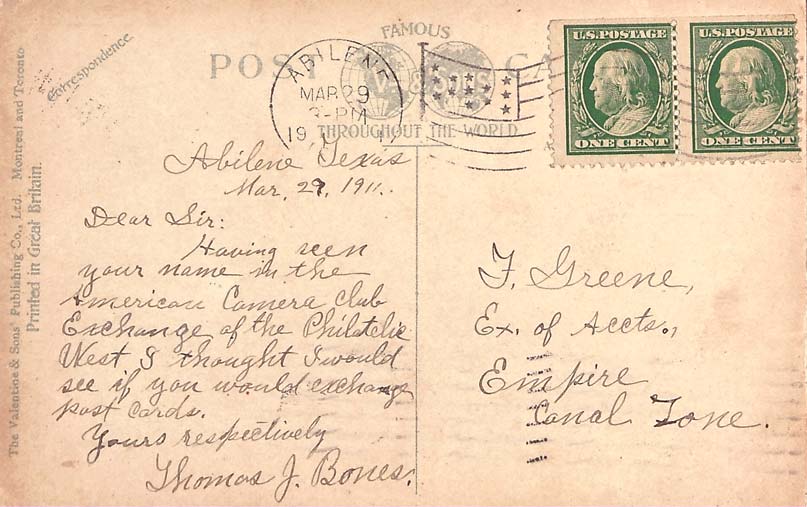 The Valentine & Sons' Publishing Co., Ltd. Montreal and Toronto
Printed in Great Britain.
Correspondence.
POST CA
FAMOUS
V. & Sons
THROUGHOUT THE WORLD
ABILENE
MAR 29
3-PM
19 11
U.S. POSTAGE
ONE CENT
U.S. POSTAGE
ONE CENT
Abilene Texas
Mar. 29, 1911.
Dear Sir:
Having seen
your name in the
American Camera Club
Exchange of the Philatelic
West, I thought I would
see if you would exchange
post cards.
Yours respectively
Thomas J. Bones.
F. Greene,
Ex. of Accts.,
Empire
Canal Zone.